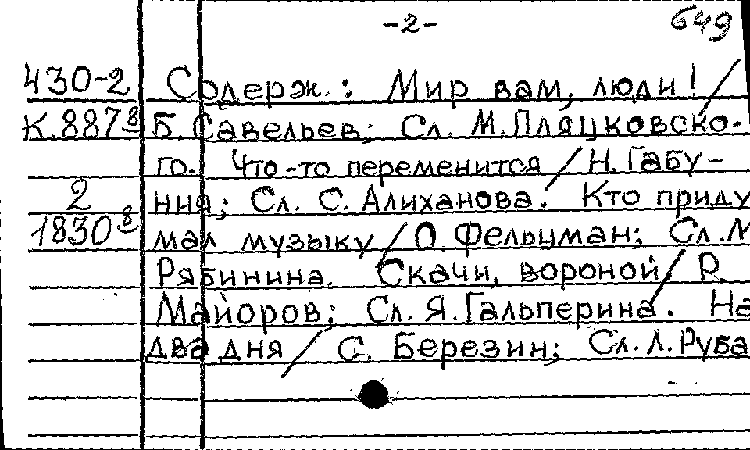 -2-
649
430-2 Содерж.: Мир вам, люди! /
К.887⁸ Б. Савельев; Сл. М. Пляцковско-
го. Что-то переменится / Н. Габу-
2 ния; Сл. С. Алиханова. Кто приду
1830⁸ мал музыку / О. Фельцман; Сл. М
Рябинина. Скачи, вороной / Р.
Майоров; Сл. Я. Гальперина. На
два дня / С. Березин; Сл. Л. Руба